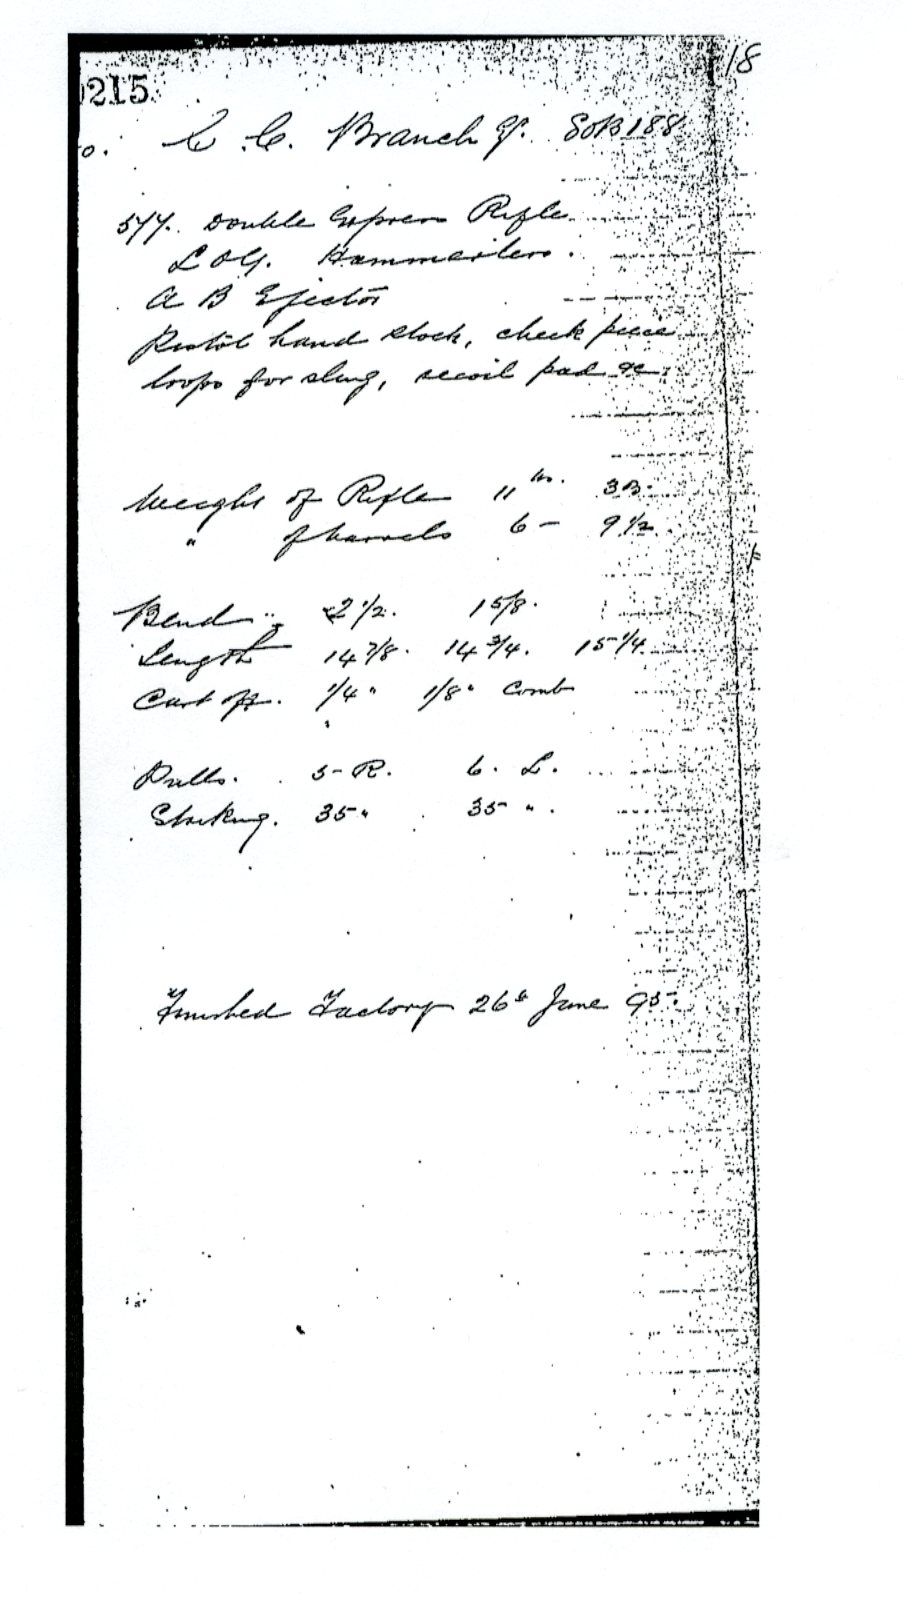 18
0215
o. C. C. Branch Esq. SOB 188
577. Double Express Rifle.
L O G. Hammerless.
A B Ejector
Pistol hand stock, cheek piece
loops for sling, recoil pad &c
Weight of Rifle 11 lbs. 3 oz.
" of barrels 6 - 9 1/2
Bend 2 1/2. 1 5/8.
Length 14 7/8. 14 3/4. 15 1/4.
Cast off. 1/4" 1/8" Comb
Pulls. 5 - R. 6. L.
Striking. 35 " 35 ".
Finished Factory 26th June 95.